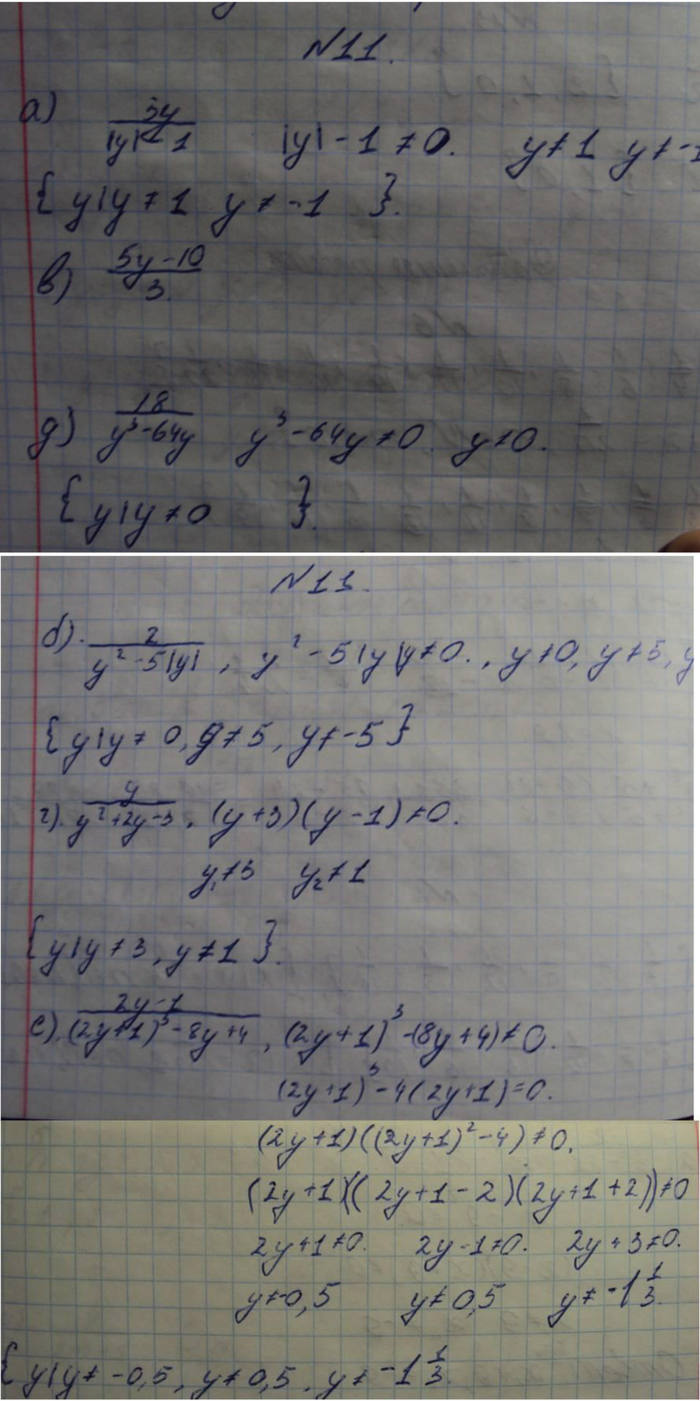 N11.
а) 3y/(|y| - 1) |y| - 1 ≠ 0. y ≠ 1 y ≠ -1
{ y|y ≠ 1 y ≠ -1 }.
в) (5y - 10)/3
д) 18/(y³ - 64y) y³ - 64y ≠ 0 y ≠ 0.
{ y|y ≠ 0 }.
N11.
б). 2/(y² - 5|y|), y² - 5|y|y ≠ 0., y ≠ 0, y ≠ 5, y
{ y|y ≠ 0, y ≠ 5, y ≠ -5 }
г). y/(y² + 2y - 3), (y + 3)(y - 1) ≠ 0.
y₁ ≠ 3 y₂ ≠ 1
{ y|y ≠ 3, y ≠ 1 }.
е). (2y - 1)/((2y + 1)³ - 8y + 4), (2y + 1)³ - (8y + 4) ≠ 0.
(2y + 1)³ - 4(2y + 1) = 0.
(2y + 1)((2y + 1)² - 4) ≠ 0.
(2y + 1)((2y + 1 - 2)(2y + 1 + 2)) ≠ 0
2y + 1 ≠ 0. 2y - 1 ≠ 0. 2y + 3 ≠ 0.
y ≠ -0,5 y ≠ 0,5 y ≠ -1 1/3.
{ y|y ≠ -0,5, y ≠ 0,5, y ≠ -1 1/3.